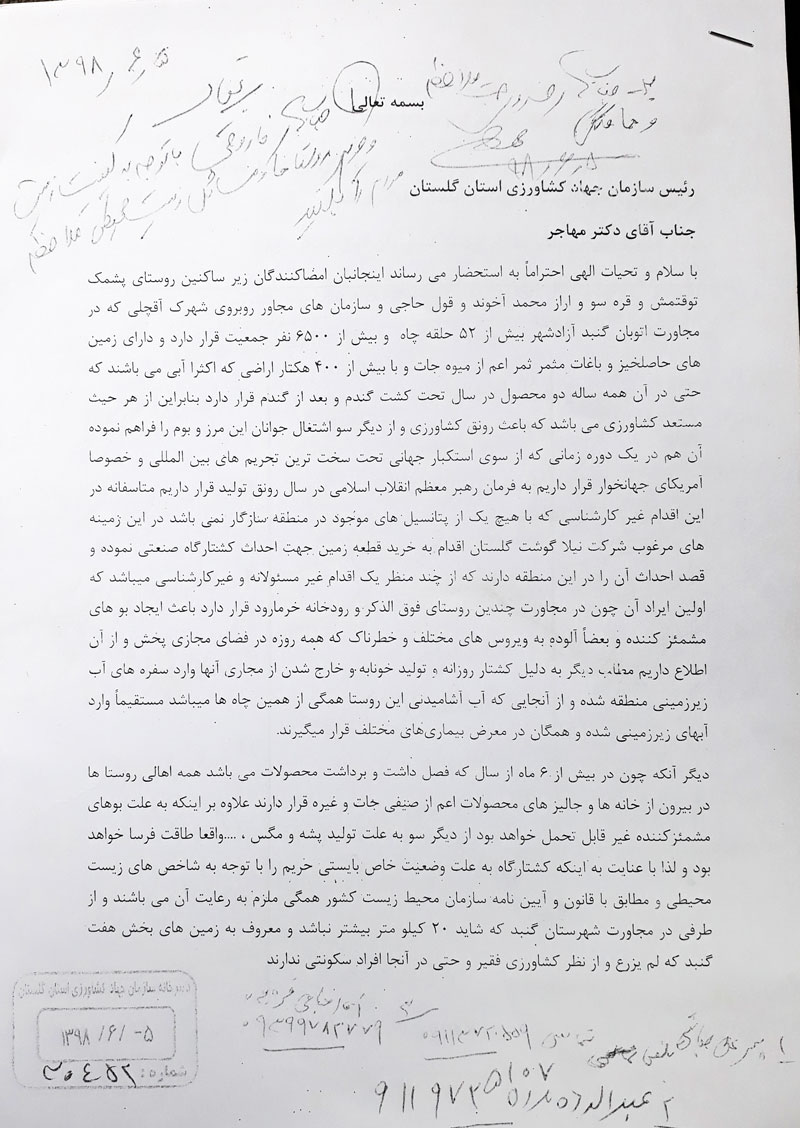 ۱۳۹۸
بسمه تعالی
رئیس سازمان جهاد کشاورزی استان گلستان
جناب آقای دکتر مهاجر
با سلام و تحیات الهی احتراماً به استحضار می رساند اینجانبان امضاکنندگان زیر ساکنین روستای پشمک
توقتمش و قره سو و اراز محمد آخوند و قول حاجی و سازمان های مجاور روبروی شهرک آقچلی که در
مجاورت اتوبان گنبد آزادشهر بیش از ۵۲ حلقه چاه و بیش از ۶۵۰۰ نفر جمعیت قرار دارد و دارای زمین
های حاصلخیز و باغات مثمر ثمر اعم از میوه جات و با بیش از ۴۰۰ هکتار اراضی که اکثرا آبی می باشند که
حتی در آن همه ساله دو محصول در سال تحت کشت گندم و بعد از گندم قرار دارد بنابراین از هر حیث
مستعد کشاورزی می باشد که باعث رونق کشاورزی و از دیگر سو اشتغال جوانان این مرز و بوم را فراهم نموده
آن هم در یک دوره زمانی که از سوی استکبار جهانی تحت سخت ترین تحریم های بین المللی و خصوصا
آمریکای جهانخوار قرار داریم به فرمان رهبر معظم انقلاب اسلامی در سال رونق تولید قرار داریم متاسفانه در
این اقدام غیر کارشناسی که با هیچ یک از پتانسیل های موجود در منطقه سازگار نمی باشد در این زمینه
های مرغوب شرکت نیلا گوشت گلستان اقدام به خرید قطعه زمین جهت احداث کشتارگاه صنعتی نموده و
قصد احداث آن را در این منطقه دارند که از چند منظر یک اقدام غیر مسئولانه و غیرکارشناسی میباشد که
اولین ایراد آن چون در مجاورت چندین روستای فوق الذکر و رودخانه خرمارود قرار دارد باعث ایجاد بو های
مشمئز کننده و بعضاً آلوده به ویروس های مختلف و خطرناک که همه روزه در فضای مجازی پخش و از آن
اطلاع داریم مطلب دیگر به دلیل کشتار روزانه و تولید خونابه و خارج شدن از مجاری آنها وارد سفره های آب
زیرزمینی منطقه شده و از آنجایی که آب آشامیدنی این روستا همگی از همین چاه ها میباشد مستقیماً وارد
آبهای زیرزمینی شده و همگان در معرض بیماری‌های مختلف قرار میگیرند.
دیگر آنکه چون در بیش از ۶ ماه از سال که فصل داشت و برداشت محصولات می باشد همه اهالی روستا ها
در بیرون از خانه ها و جالیز های محصولات اعم از صیفی جات و غیره قرار دارند علاوه بر اینکه به علت بوهای
مشمئزکننده غیر قابل تحمل خواهد بود از دیگر سو به علت تولید پشه و مگس ، ....واقعا طاقت فرسا خواهد
بود و لذا با عنایت به اینکه کشتارگاه به علت وضعیت خاص بایستی حریم را با توجه به شاخص های زیست
محیطی و مطابق با قانون و آیین نامه سازمان محیط زیست کشور همگی ملزم به رعایت آن می باشند و از
طرفی در مجاورت شهرستان گنبد که شاید ۲۰ کیلو متر بیشتر نباشد و معروف به زمین های بخش هفت
گنبد که لم یزرع و از نظر کشاورزی فقیر و حتی در آنجا افراد سکونتی ندارند
دبیرخانه سازمان جهاد کشاورزی استان گلستان
۱۳۹۸ /۶/ -۵
شماره: